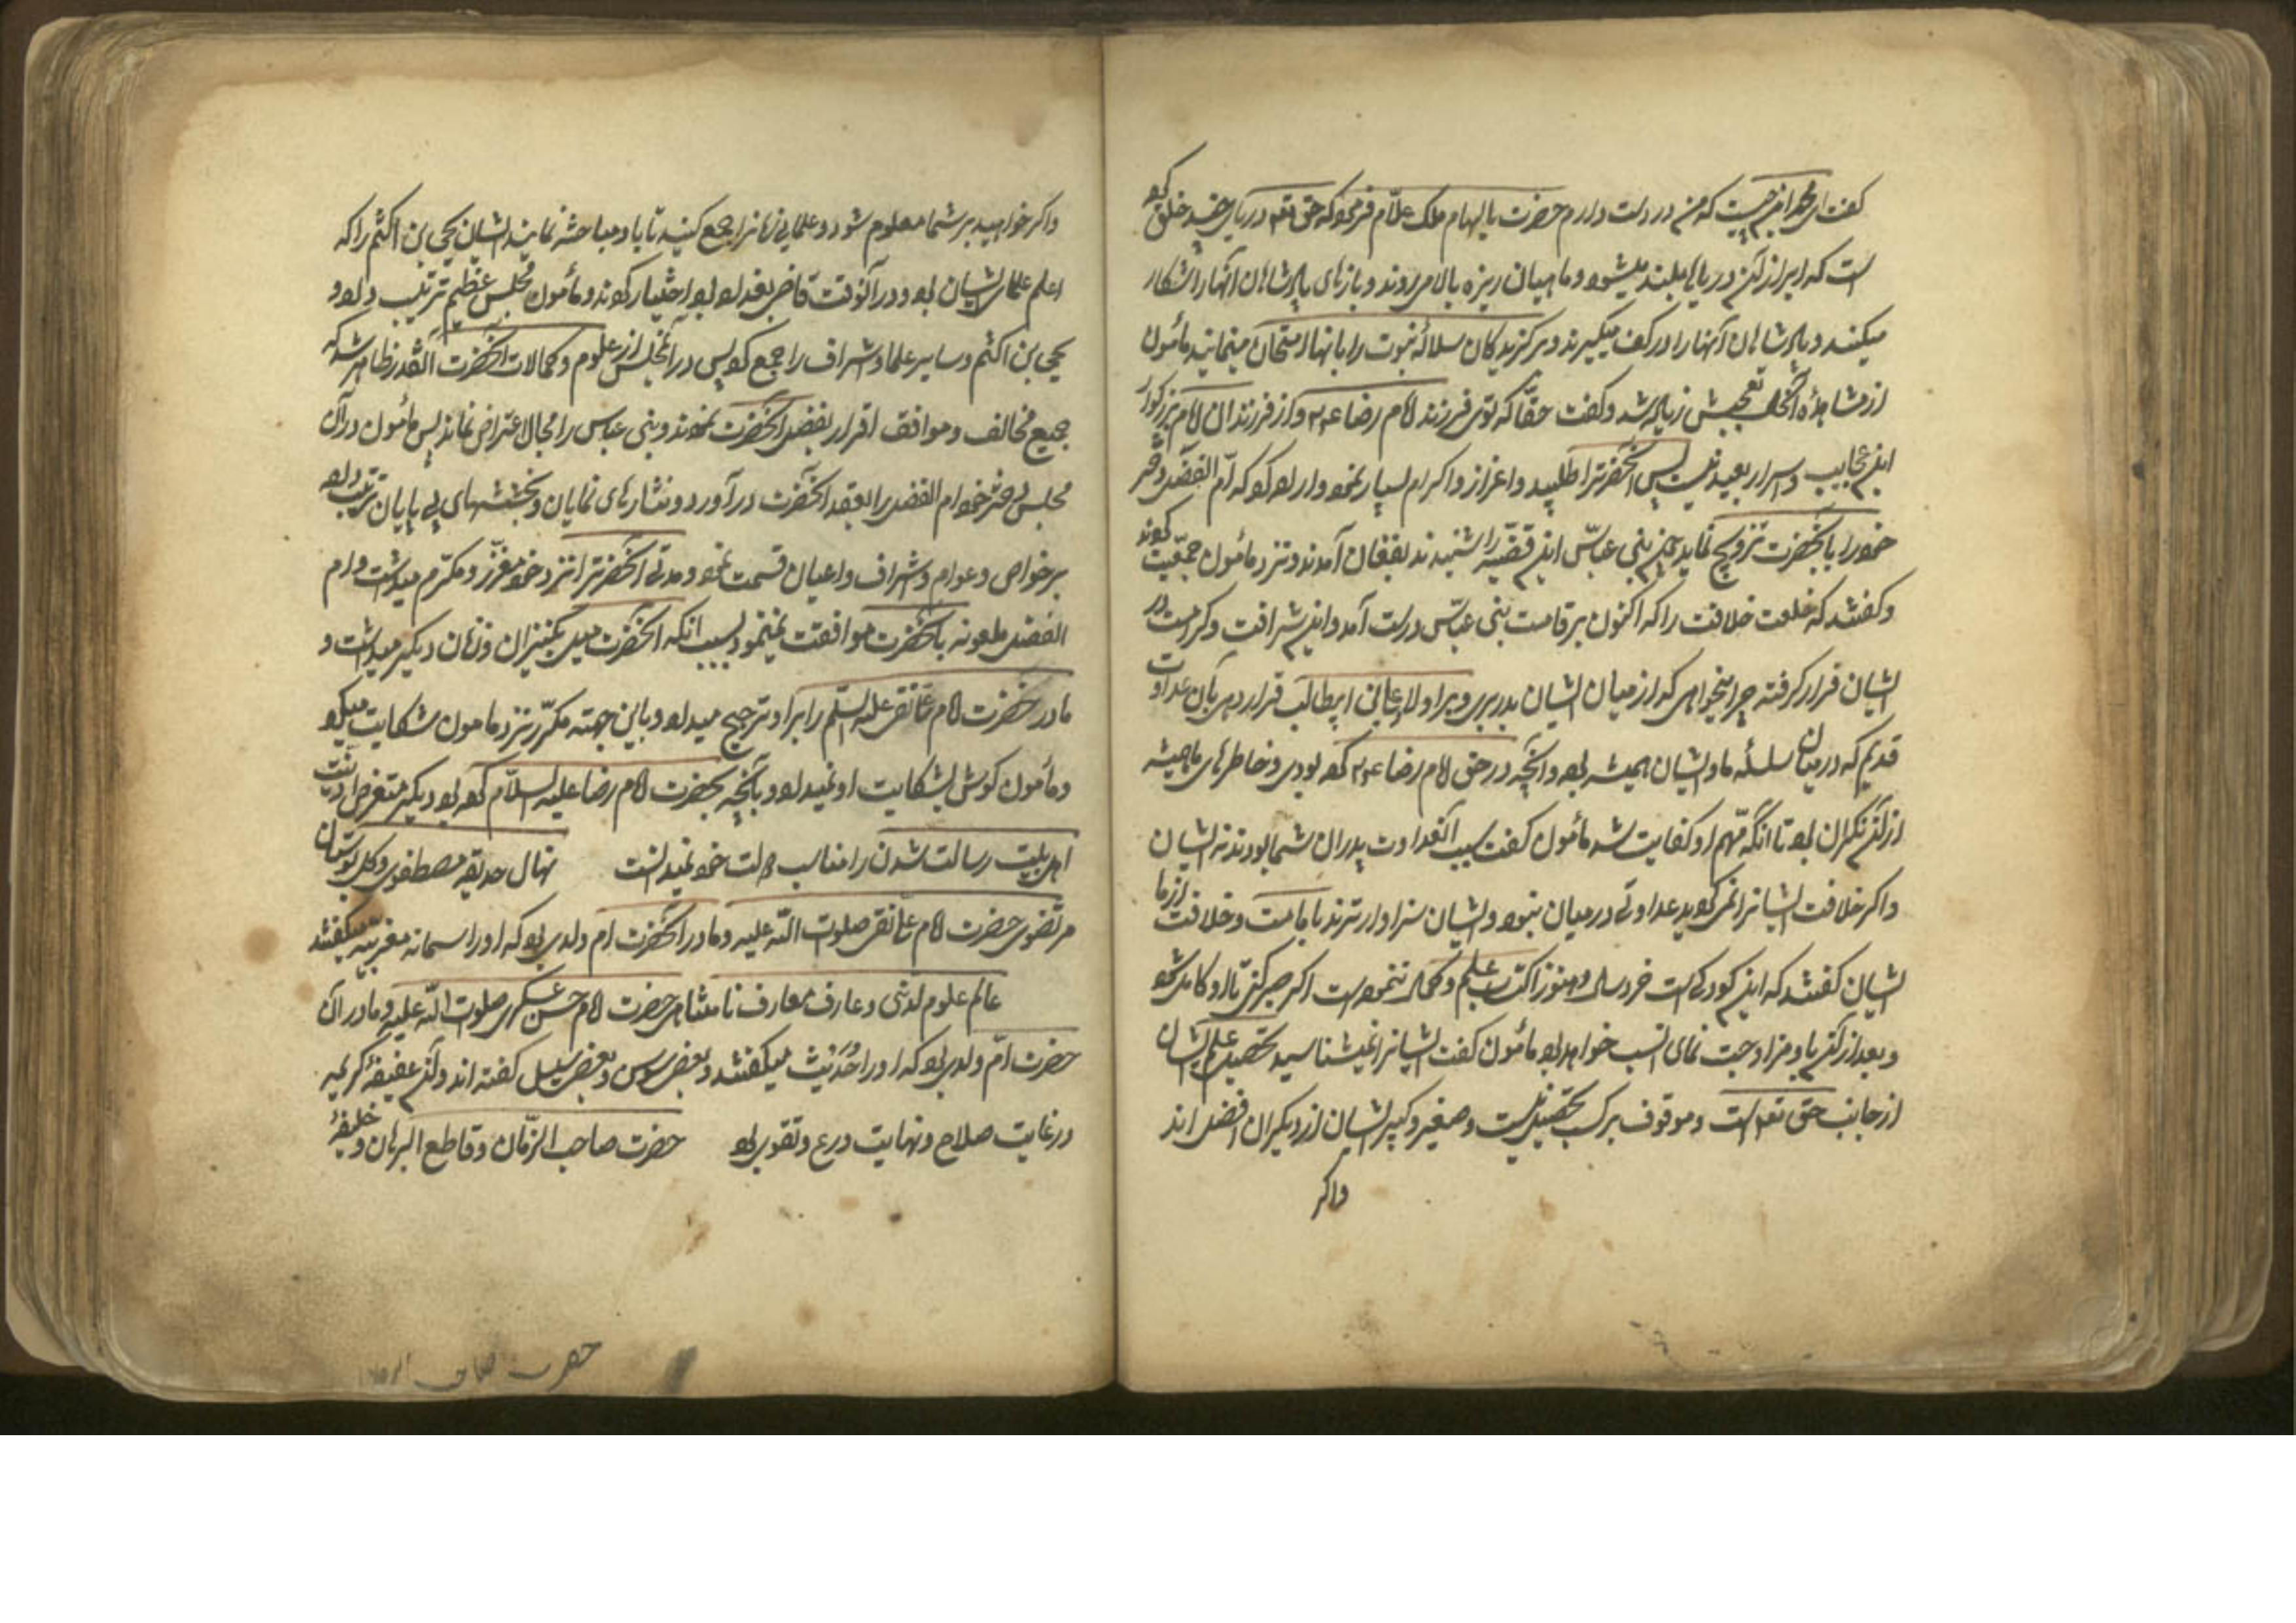 گفت ای محمد این چیست که من در دست دارم حضرت بالهام ملک علام فرمود که حق تعه دریای چند خلق کرده
است که ابر از آن دریاها بلند میشود و ماهیان ریزه بالا میروند و بازهای پادشاهان آنها را شکار
میکنند و پادشاهان آنها را در کف میگیرند و برگزیدگان سلاله نبوت را بآنها امتحان مینمایند مأمون
از مشاهده آنحال تعجبش زیاده شد و گفت حقا که توی فرزند امام رضا ع و از فرزندان آن امام بزرگوار
این عجایب و اسرار بعید نیست پس آنحضرترا طلبید و اعزاز و اکرام بسیار نمود و اراده کرد که ام الفضل دختر
خود را بآنحضرت تزویج نماید چون بنی عباس این قضیه را شنیدند بفغان آمدند و نزد مأمون جمعیت کردند
و گفتند که خلعت خلافت را که اکنون بر قامت بنی عباس درست آمده و این شرافت و کرامت در
ایشان قرار گرفته چرا میخواهی که از میان ایشان بدر بری و بر اولاد علی ابن ابیطالب قرار دهی با آن عداوت
قدیم که در میان سلسله ما و ایشان همیشه بود و آنچه در حق امام رضا ع کرده بودی و خاطرهای ما همیشه
از آن نگران بود تا آنکه مهم او کفایت شد مأمون گفت سبب آنعداوت پدران شما بودند نه ایشان
و اگر خلافت ایشانرا غصب نمیکردند عداوتی در میان نبود و ایشان سزاوارترند بامامت و خلافت از ما
ایشان گفتند که این کودکیست خردسال و هنوز اکتساب علم و کمال ننموده است اگر صبر کنی تا او کامل شود
و بعد از آن باو مزاوجت نمای انسب خواهد بود مأمون گفت ایشانرا نمیشناسید تحصیل علم ایشان
از جانب حق تعه است و موقوف بر کسب و تحصیل نیست و صغیر و کبیر ایشان از دیگران افضل اند
و اگر
و اگر خواهید بر شما معلوم شود و علمای زمانرا جمع کنید تا با او مباحثه نمایند ایشان یحیی بن اکثم را که
اعلم علمای ایشان بود و در آنوقت قاضی بغداد بود اختیار کردند و مأمون مجلس عظیم ترتیب داد و
یحیی بن اکثم و سایر علما و اشراف را جمع کرد پس در آنمجلس از علوم و کمالات آنحضرت آنقدر ظاهر شد که
جمیع مخالف و موافق اقرار بفضل آنحضرت نمودند و بنی عباس را مجال اعتراض نماند پس مأمون در آن
مجلس دختر خود ام الفضل را بعقد آنحضرت در آورد و نثارهای نمایان و بخششهای بی پایان ترتیب داد
بر خواص و عوام و اشراف و اعیان قسمت نمود و مدتی آنحضرترا نزد خود معزز و مکرم میداشت و ام
الفضل ملعونه با آنحضرت موافقت نمینمود بسبب آنکه آنحضرت میل بکنیزان و زنان دیگر میداشت و
مادر حضرت امام علی نقی علیه السلم را بر او ترجیح میداد و باین جهته مکرر نزد مامون شکایت میکرد
و مأمون گوش بشکایت او نمیداد و بآنچه بحضرت امام رضا علیه السلام کرده بود دیگر متعرض اذیت
اهل بیت رسالت شدن را مناسب دولت خود نمیدانست نهال حدیقه مصطفوی و گل بوستان
مرتضوی حضرت امام علی نقی صلوت الله علیه و مادر آنحضرت ام ولدی بود که او را سمانه مغربیه میگفتند
عالم علوم لدنی و عارف معارف نامتناهی حضرت امام حسن عسکری صلوت الله علیه و مادر آن
حضرت ام ولدی بود که او را حدیث میگفتند و بعضی سوسن و بعضی سلیل گفته اند و آن عفیفه کریمه
در غایت صلاح و نهایت ورع و تقوی بود حضرت صاحب الزمان و قاطع البرهان و خلیفه
حضرت صاحب الزمان